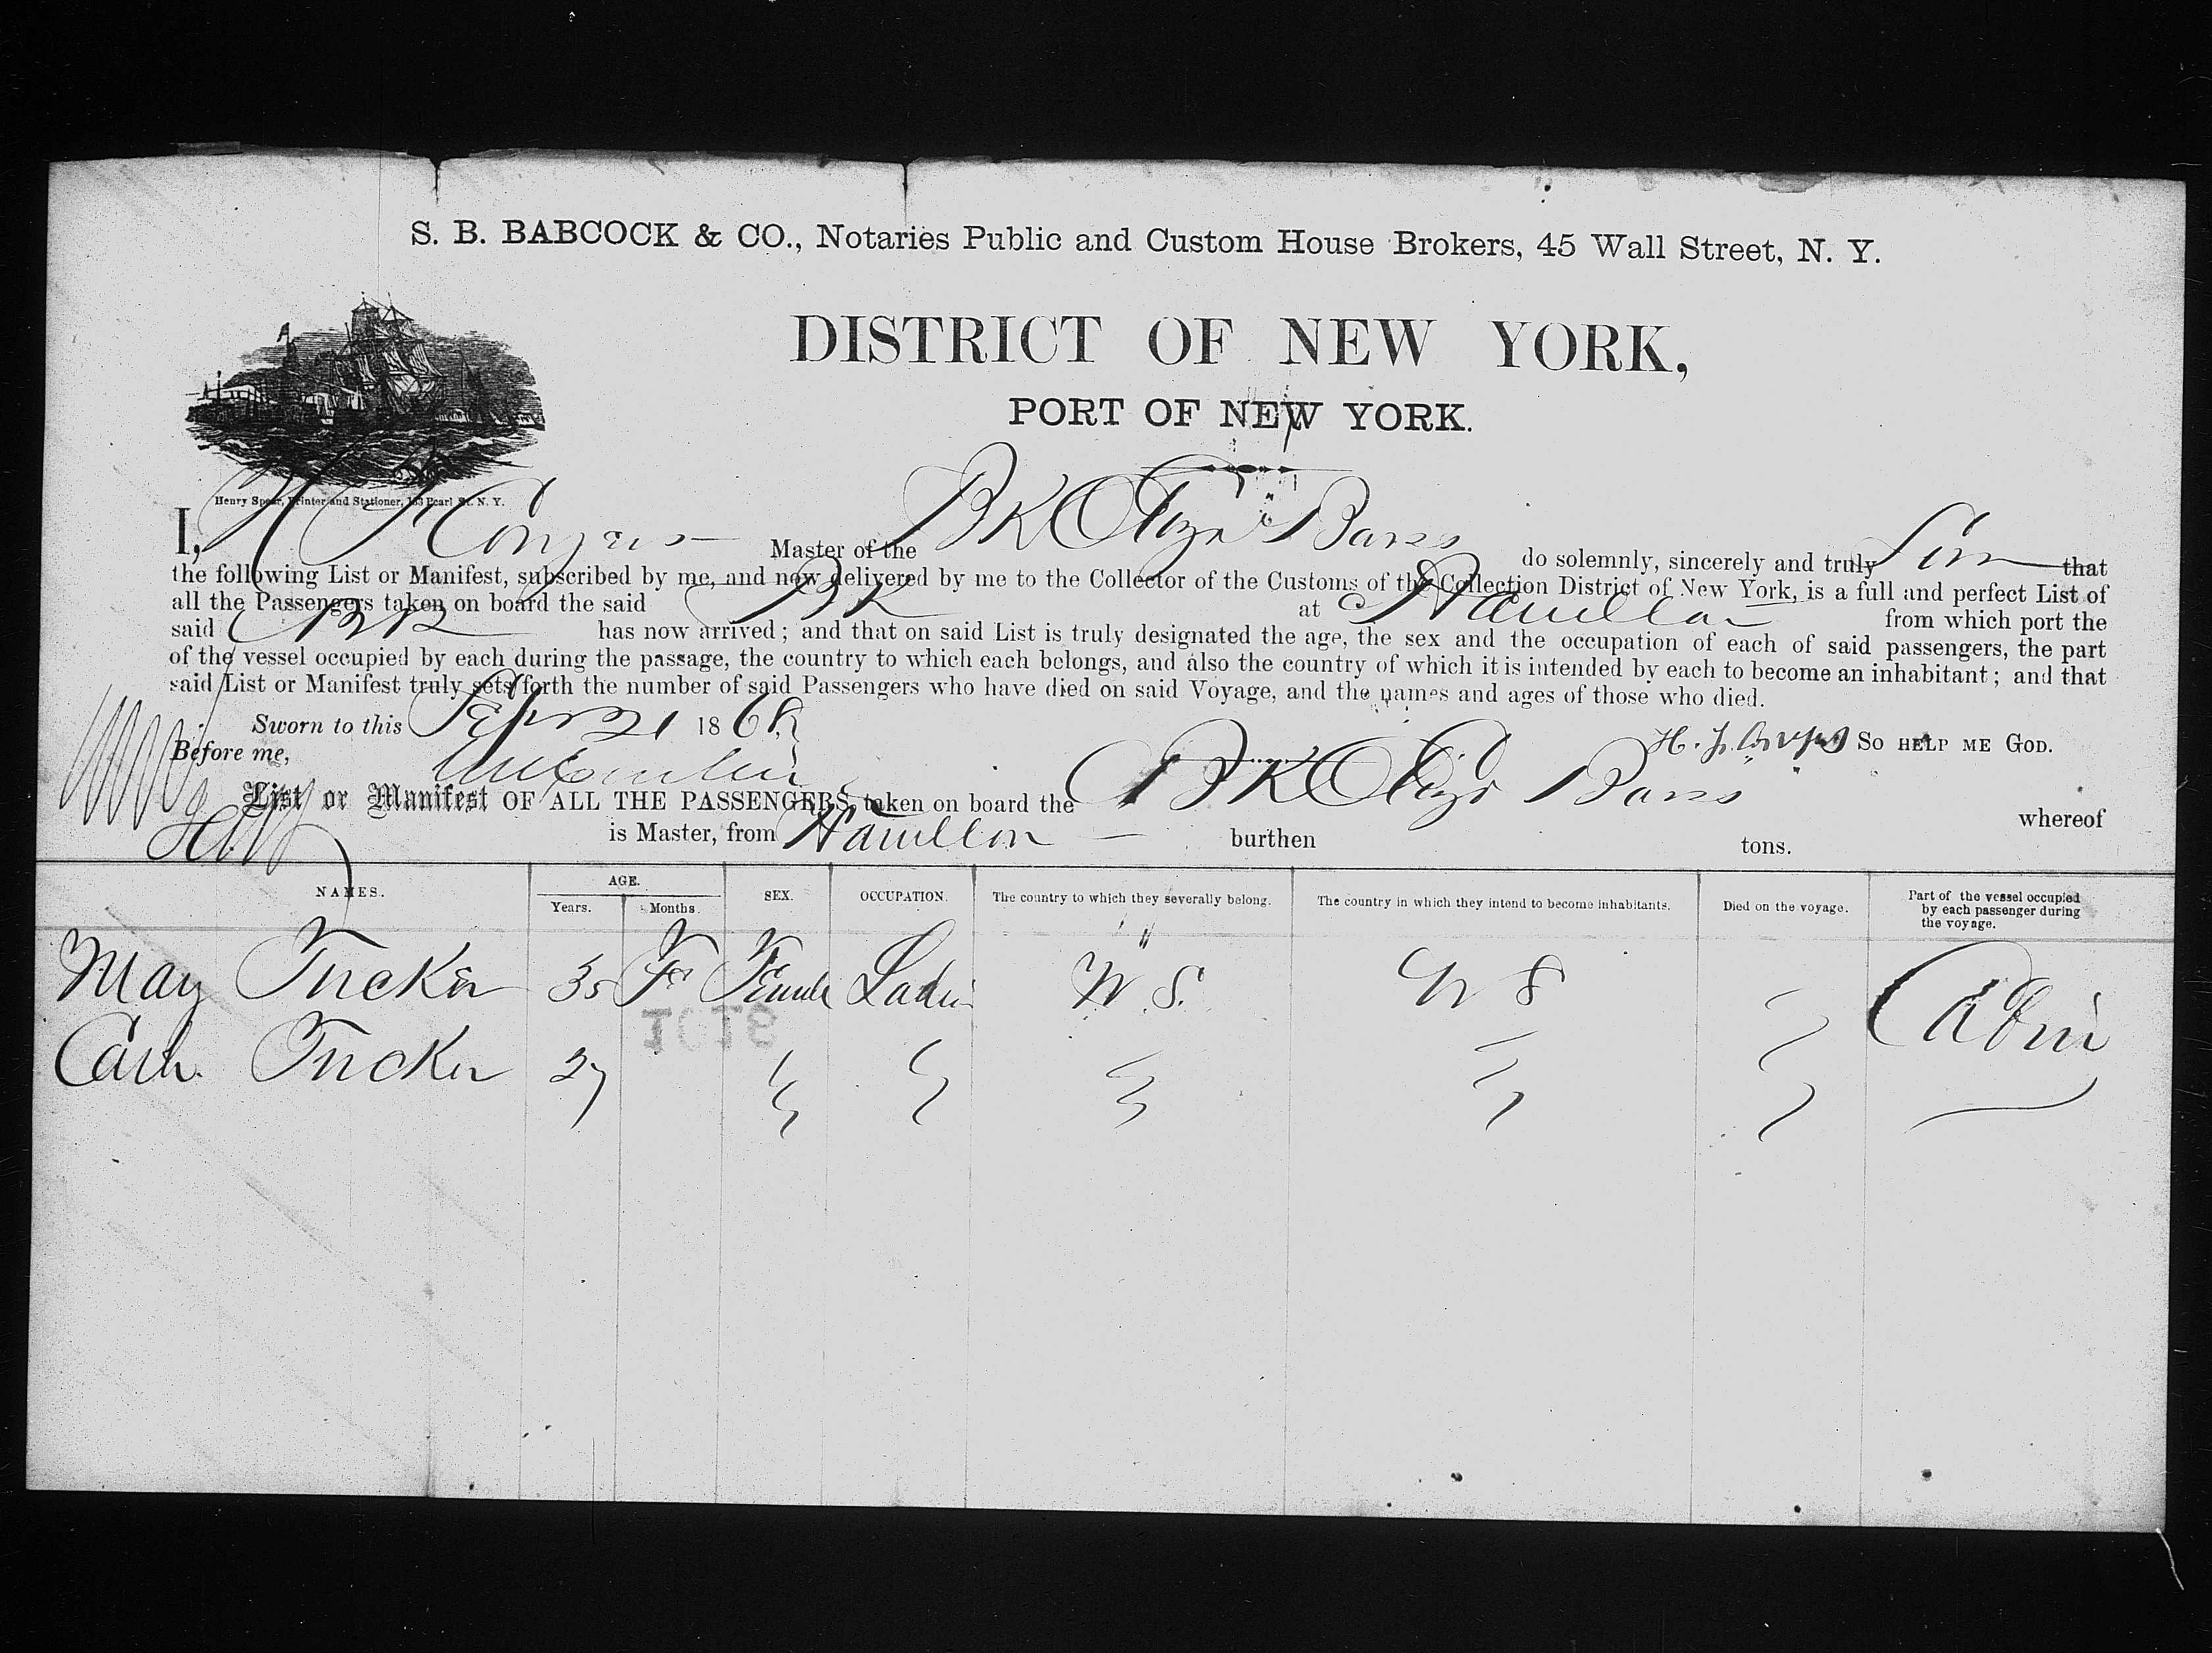 S. B. BABCOCK & CO., Notaries Public and Custom House Brokers, 45 Wall Street, N. Y.
DISTRICT OF NEW YORK,
PORT OF NEW YORK.
Henry Spear, Printer and Stationer, 163 Pearl St. N. Y.
I, Master of the BK Eliza Barss do solemnly, sincerely and truly that
the following List or Manifest, subscribed by me, and now delivered by me to the Collector of the Customs of the Collection District of New York, is a full and perfect List of
all the Passengers taken on board the said BK at Hamilton from which port the
said BK has now arrived; and that on said List is truly designated the age, the sex and the occupation of each of said passengers, the part
of the vessel occupied by each during the passage, the country to which each belongs, and also the country of which it is intended by each to become an inhabitant; and that
said List or Manifest truly sets forth the number of said Passengers who have died on said Voyage, and the names and ages of those who died.
Sworn to this 21 1868
SO HELP ME GOD.
Before me,
List or Manifest OF ALL THE PASSENGERS, taken on board the BK Eliza Barss whereof
is Master, from Hamilton burthen tons.
NAMES. AGE. Years. Months. SEX. OCCUPATION. The country to which they severally belong. The country in which they intend to become inhabitants. Died on the voyage. Part of the vessel occupied by each passenger during the voyage.
May Tucker 35 Female Ladie Cabin
Tucker 27